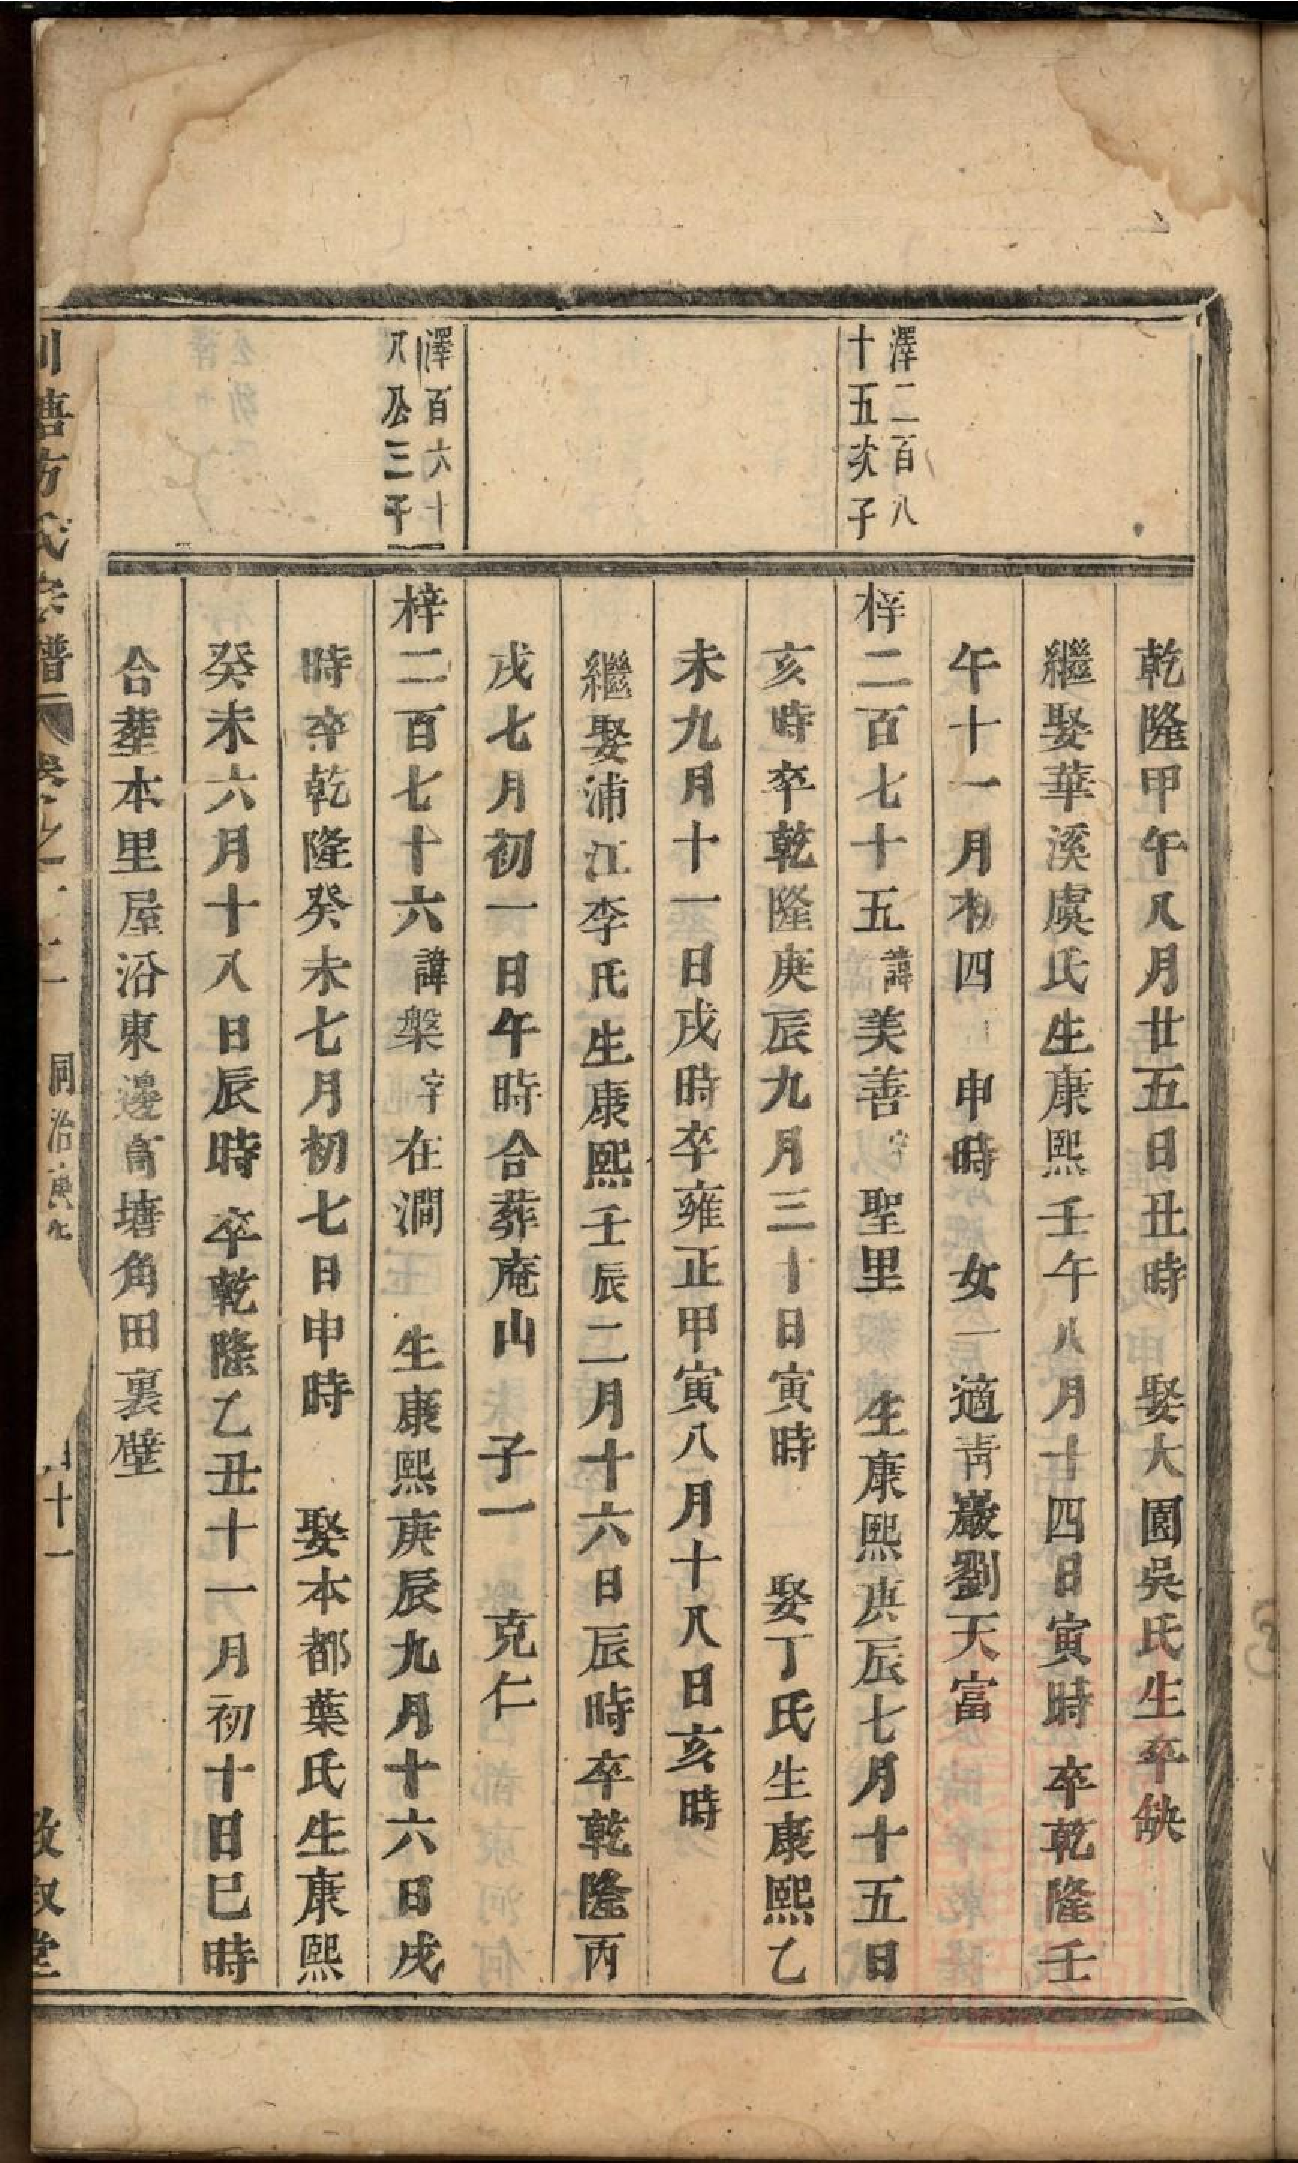 乾隆甲午八月廿五日丑時 娶大園吳氏生卒缺
繼娶華溪虞氏生康熙壬午八月十四日寅時卒乾隆壬
午十一月初四 申時 女一適青巖劉天富
澤二百八
十五次子
梓二百七十五諱美善字聖里 生康熙庚辰七月十五日
亥時卒乾隆庚辰九月三十日寅時 娶丁氏生康熙乙
未九月十一日戌時卒雍正甲寅八月十八日亥時
繼娶浦江李氏生康熙壬辰二月十六日辰時卒乾隆丙
戌七月初一日午時合葬庵山 子一 克仁
澤百六十
八公三子
梓二百七十六諱槃字在澗 生康熙庚辰九月十六日戌
時卒乾隆癸未七月初七日申時 娶本都葉氏生康熙
癸未六月十八日辰時卒乾隆乙丑十一月初十日巳時
合塟本里屋沿東邊高塘角田裏壁
塘方氏宗譜 卷之 同治庚午 十一 敘堂